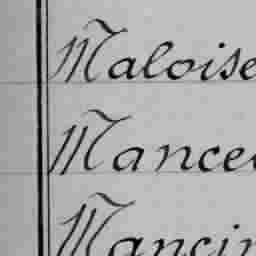 Maloise
Mance
Mancin